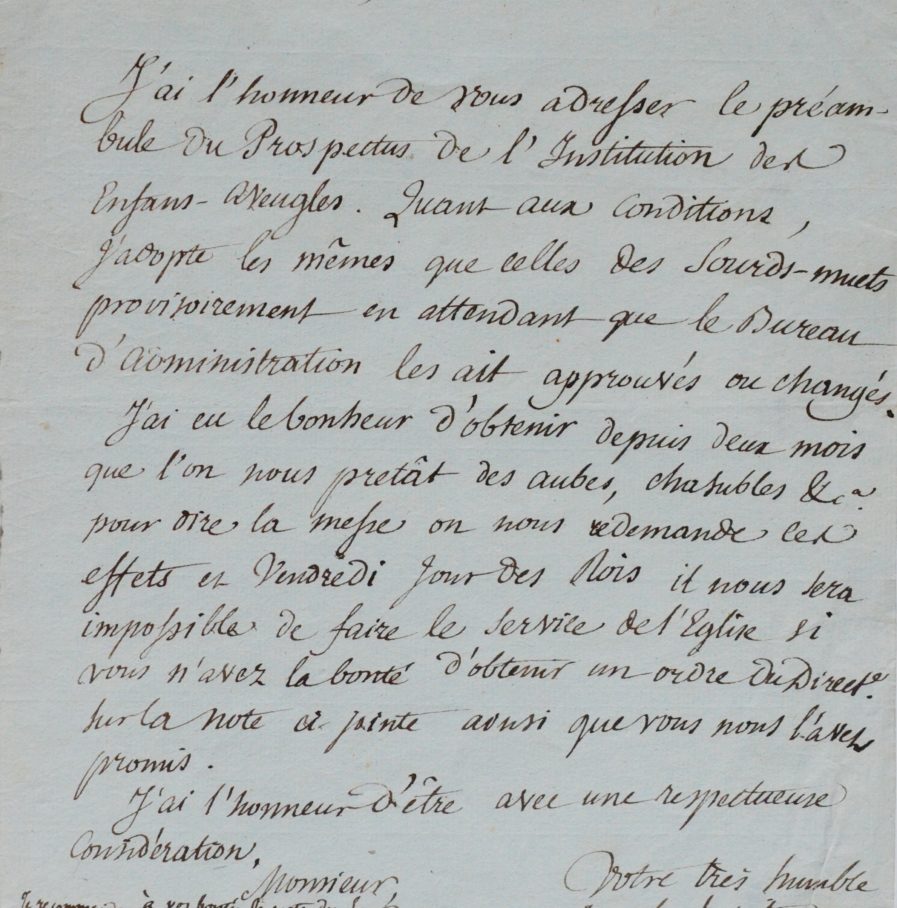 J'ai l'honneur de vous adresser le préam-
bule du Prospectus de l'Institution des
Enfans-aveugles. Quant aux conditions,
j'adopte les mêmes que celles des Sourds-muets
provisoirement en attendant que le Bureau
d'administration les ait approuvés ou changés.
J'ai eu le bonheur d'obtenir depuis deux mois
que l'on nous pretât des aubes, chasubles &ca.
pour dire la messe on nous redemande ces
effets et Vendredi jour des Rois il nous sera
impossible de faire le service de l'Eglise si
vous n'avez la bonté d'obtenir un ordre du Direct.e
sur la note ci-jointe ainsi que vous nous l'avez
promis.
J'ai l'honneur d'être avec une respectueuse
Considération,
Monsieur
Votre très humble
à vos